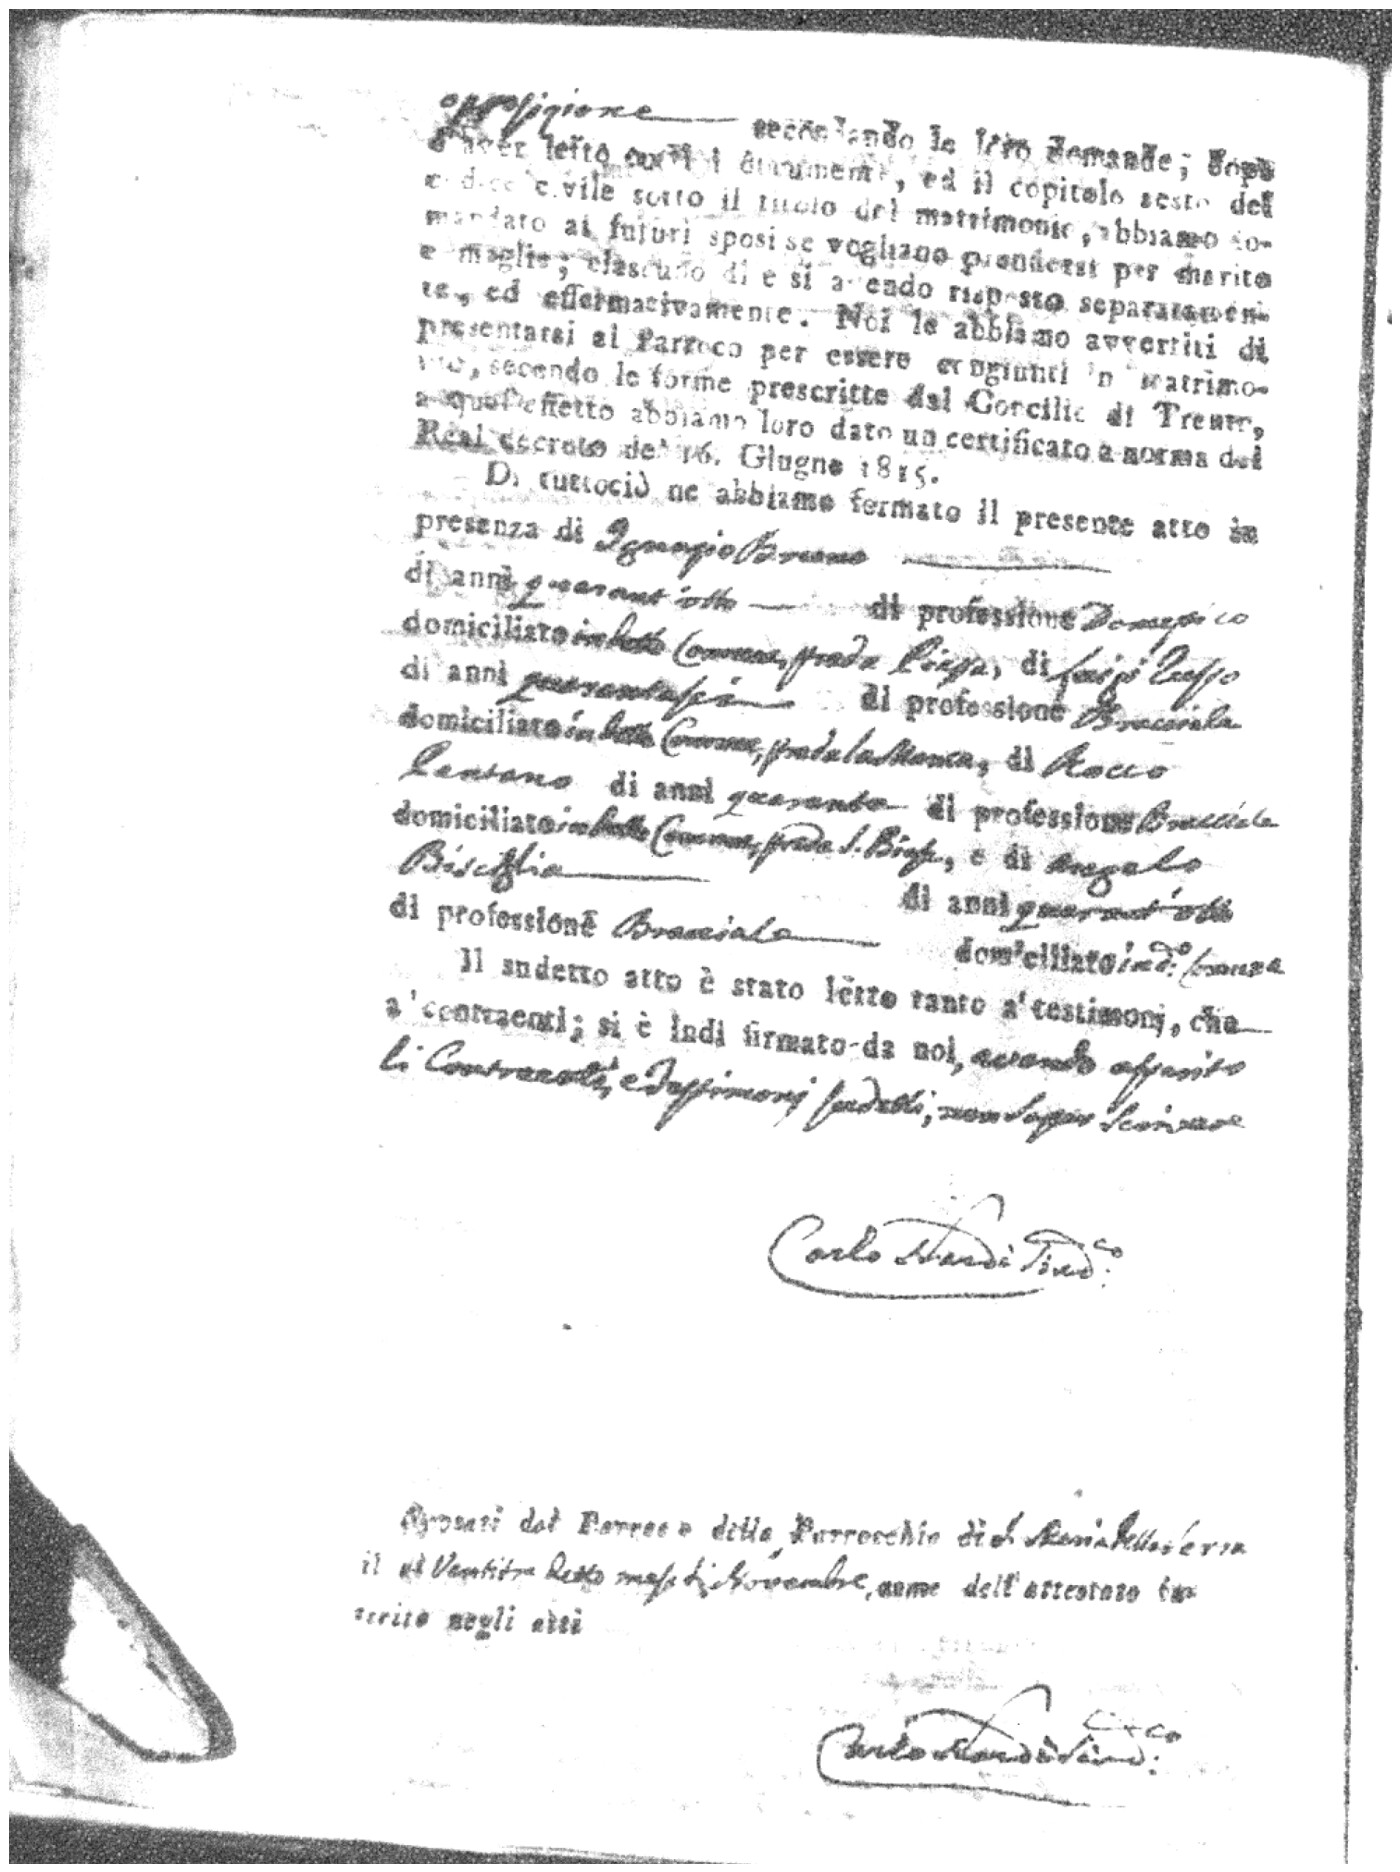 opposizione secondando le loro domande; dopo
d'aver letto tutti i documenti, ed il copitolo sesto del
codice civile sotto il titolo del matrimonio, abbiamo do-
mandato ai futuri sposi se vogliano prendersi per marito
e moglie; ciascuno di essi avendo risposto separatamen-
te, ed affermativamente. Noi le abbiamo avvertiti di
presentarsi al Parroco per essere congiunti in matrimo-
nio, secondo le forme prescritte dal Concilio di Trento,
a quest'effetto abbiamo loro dato un certificato a norma del
Real decreto de' 16. Giugno 1815.
Di tuttociò ne abbiamo formato il presente atto in
presenza di Ignazio Bruno
di anni quarant'otto di professione Domestico
domiciliato in detto Comune, strada Piazza, di Luigi
di anni quarantasei di professione Bracciale
domiciliato in detto Comune, strada la Manca, di Rocco
Pensano di anni quaranta di professione Bracciale
domiciliato in detto Comune, strada S. Biase, e di Angelo
Bisciglia di anni quarant'otto
di professione Bracciale domiciliato in d.o Comune
Il sudetto atto è stato letto tanto a' testimonj, che
a' contraenti; si è indi firmato da noi, avendo asserito
li Contraenti, e Testimonj sudetti, non saper scrivere
Carlo Nardi Sind.co
Sposati dal Parroco della Parrocchia di S. Maria della Serra
il dì Ventitre detto mese di Novembre, come dell'attestato in-
serito negli atti
Carlo Nardi Sind.co